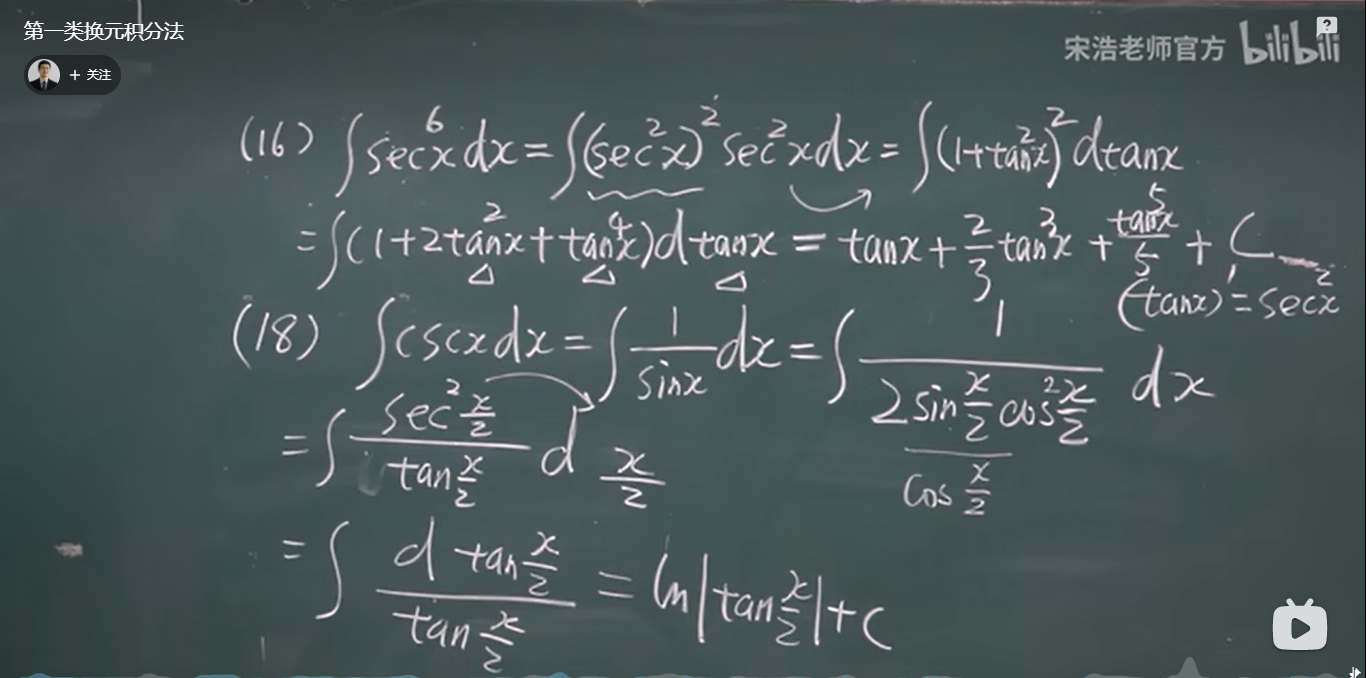 第一类换元积分法
+ 关注
宋浩老师官方 bilibili
(16) ∫sec⁶x dx = ∫(sec²x)² sec²x dx = ∫(1+tan²x)² dtanx
= ∫(1+2tan²x+tan⁴x)d tanx = tanx + 2/3 tan³x + tan⁵x/5 + C
(tanx)' = sec²x
(18) ∫cscx dx = ∫ 1/sinx dx = ∫ 1/(2sin x/2 cos² x/2 / cos x/2) dx
= ∫ sec² x/2 / tan x/2 d x/2
= ∫ d tan x/2 / tan x/2 = ln|tan x/2|+C